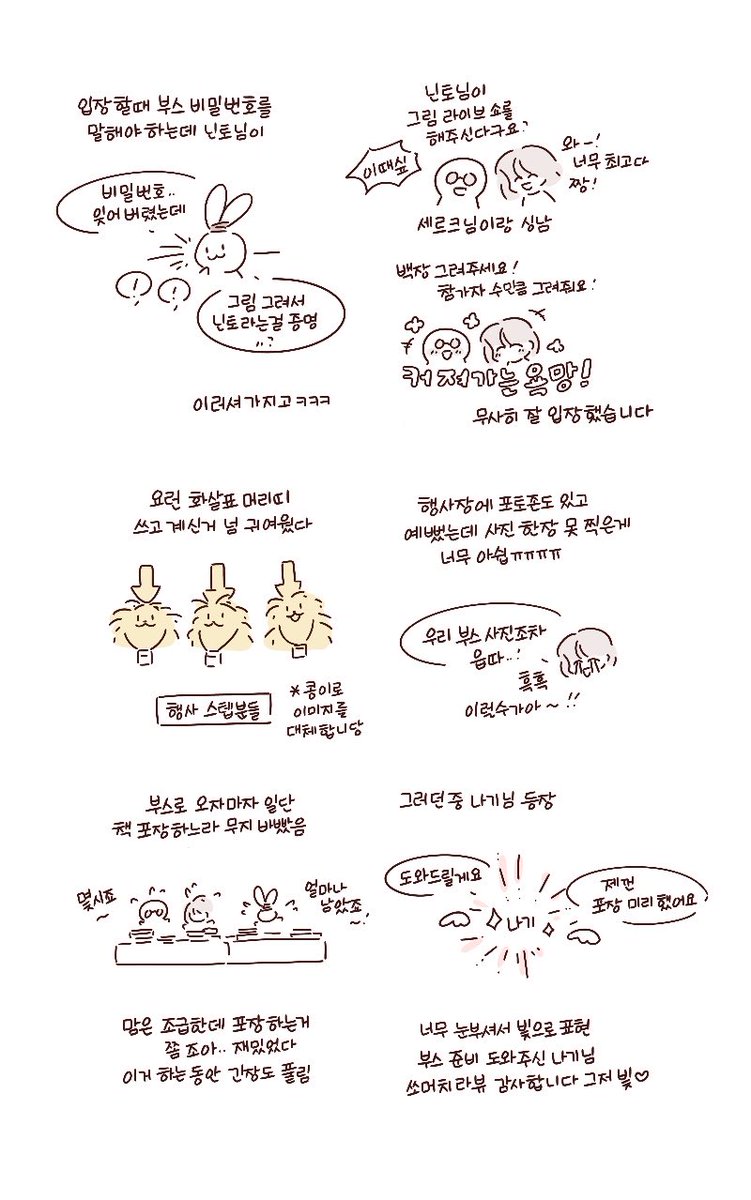 입장할때 부스 비밀번호를
말해야하는데 닌토님이
비밀번호..
잊어버렸는데
!
!
그림 그려서
닌토라는걸 증명
..?
이러셔가지고ㅋㅋㅋ
닌토님이
그림 라이브 쇼를
해주신다구요?
이때싶
와-!
너무 최고다
짱!
세르크님이랑 싱남
백장 그려주세요!
참가자 수만큼 그려줘요!
커져가는 욕망!
무사히 잘 입장했습니다
요런 화살표 머리띠
쓰고 계신거 넘 귀여웠다
행사 스텝분들
*콩이로
이미지를
대체합니당
행사장에 포토존도 있고
예뻤는데 사진 한장 못 찍은게
너무 아쉽ㅠㅠㅠㅠ
우리 부스 사진조차
읍따..!
흑흑
이럴수가아~!!
부스로 오자마자 일단
책 포장하느라 무지 바빴음
몇시죠
~
얼마나
남았죠
~!
맘은 조급한데 포장하는거
쫌 조아.. 재밌었다
이거 하는동안 긴장도 풀림
그러던 중 나기님 등장
도와드릴게요
제껀
포장 미리했어요
나기
너무 눈부셔서 빛으로 표현
부스 준비 도와주신 나기님
쏘머치라뷰 감사합니다 그저 빛♡